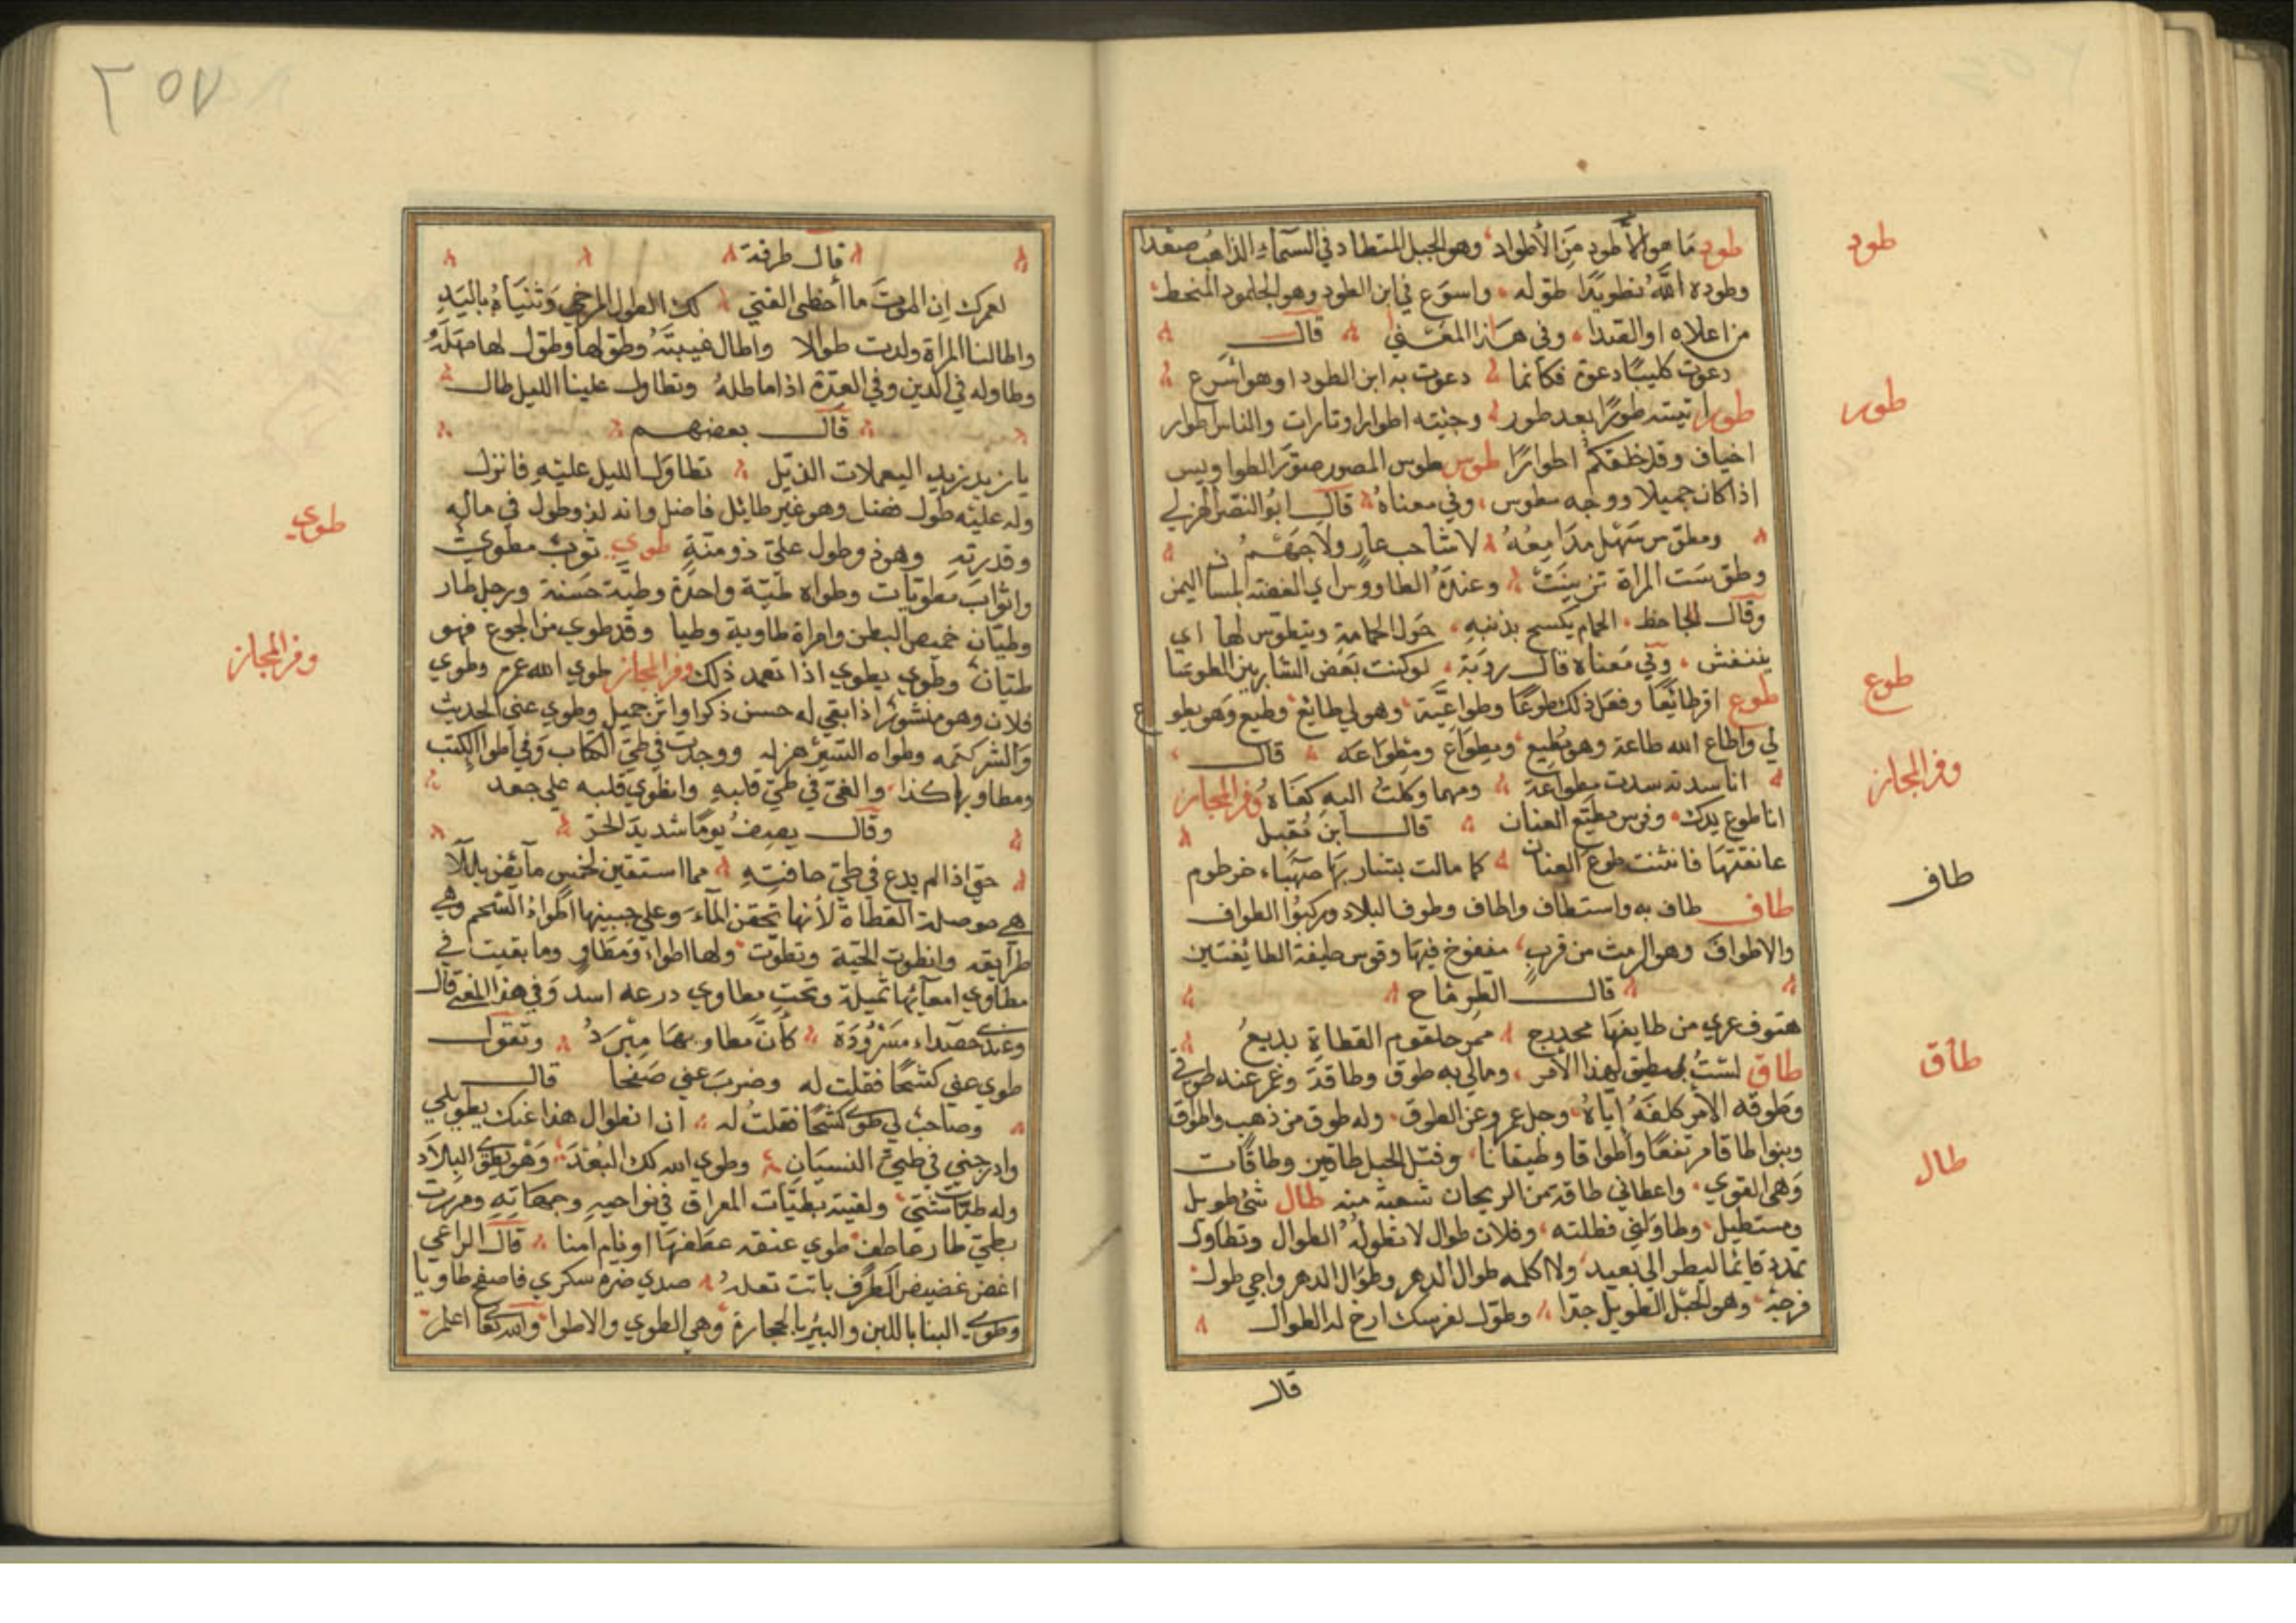 طود ما هو إلا طود من الأطواد وهو الجبل المتطاد في السماء الذاهب صعدا
وطوده الله تطويدا طوله واسوع في ابن الطود وهو الجلمود المنحط
من اعلاه او الصدا وفي هذا المعنى قال
دعوت كليبا دعوة فكأنما دعوت به ابن الطود او هو اسرع
طور اتيته طورا بعد طور وجئته اطوارا وتارات والناس اطوار
اخياف وقد خلقكم اطوارا طوس طوس المصور صور الطواويس
اذا كان جميلا ووجه مطوس وفي معناه قال ابو النصر الهزلي
ومطوس سهل مدامعه لا شاحب عار ولا جهم
وطوست المراة تزينت وعنده الطاووس اي الفضة بلسان اليمن
وقال الجاحظ الحمام يكسح بذنبه حول الحمامة ويتطوس لها اي
يتنفش وفي معناه قال روبة لو كنت بعض الشاربين الطوسا
طوع اقر طائعا وفعل ذلك طوعا وطواعية وهو لي طائع وطيع وهو يطوع
لي واطاع الله طاعة وهو مطيع ومطواع ومطواعة قال
اذا سدته سدت مطواعة ومهما وكلت اليه كفاه وفر المجاز
انا طوع يدك وفرس طيع العنان قال ابن مقبل
عانقتها فانثنت طوع العنان كما مالت بشاربها صهباء خرطوم
طاف طاف به واستطاف واطاف وطوف البلاد وركبوا الطواف
والاطواف وهو الرمث من قرب منفوخ فيها وقوس طيفة الطائفتين
قال الطرماح
هتوف عوى من طايفها محدرج ممر حلقوم القطاة بديع
طاق لست بمطيق لهذا الأمر ومالي به طوق وطاقة وعز عنه طوقي
وطوقه الأمر كلفه اياه وجل عمرو عن الطوق وله طوق من ذهب واطواق
وبنوا طاقا مرتفعا واطواقا وطيقانا وفتل الحبل طاقين وطاقات
وهي القوي واعطاني طاقة من الريحان شعبة منه طال شئ طويل
ومستطيل وطاولني فطلته وفلان طوال لا تطوله الطوال وتطاول
تمدد قائما لينظر الى بعيد ولا اكلمه طوال الدهر وطوال الدهر وارخي طول
فرسه وهو الحبل الطويل جدا وطول لفرسك ارخ له الطوال
قال
طود
طور
طوع
وفر المجاز
طاف
طاق
طال
٢٥٧
قال طرفة
لعمرك ان الموت ما أخطى الفتي لك الطول المرخي وثنياه باليد
واطالنا المراة ولدت طوالا واطال غيبته وطول لها وطول لها مهله
وطاوله في الدين وفي العدة اذا ماطله وتطاول علينا الليل طال
قال بعضهم
يا زيد زيد اليعملات الذبل تطاول الليل عليه فانزل
وله عليه طول فضل وهو غير طايل فاضل وانه لذو طول في ماله
وقدرته وهو ذو طول علي ذو منة طوي ثوب مطوي
واثواب مطويات وطواه طية واحدة وطية حسنة ورجل طار
وطيان خميص البطن وامراة طاوية وطيا وقد طوي من الجوع فهو
طيان وطوي يطوي اذا تعمد ذلك وفر المجاز طوي الله عمره وطوي
فلان وهو منشور اذا بقي له حسن ذكر او اثر جميل وطوي عني الحديث
والسر كتمه وطواه السير هزله ووجدت في طي الكتاب وفي اطوا الكتب
ومطاويها كذا والغي في طي قلبه وانطوي قلبه علي جعد
وقال يصف يوما شديد الحر
حتى اذا لم يدع في طي حافته مما استقين لخمس
هي حوصلة القطاة لأنها تحقن الماء وعلي جبينها اطواء الشحم وهي
طرايقه وانطوت الحية وتطوت ولها اطواء ومطاو وما بقيت في
مطاوي امعائها ثميلة وتحت مطاوي درعه اسد وفي هذا المعنى قال
وعندي حصداء مسرودة كأن مطاويها مبرد وتقول
طوي عني كشحا فقلت له وضرب عني صفحا قال
وصاحب لي طوى كشحا فقلت له ان انطوال هذا عنك يطويني
وادرجني في طي النسيان وطوي الله لك البعد وهو يطوي البلاد
وله طيات شتى ولقيته بطيات العراق في نواحيه وجهاته ومررت
بظبي طار عاطف طوي عنقه عطفها او نام امنا قال الراعي
اغض غضيض الطرف باتت تعله صدي ضره سكري فاصبح طاويا
وطوى البنا باللبن والبئر بالحجارة وهي الطوي والاطوا والله تعا اعلم
طوي
وفر المجاز